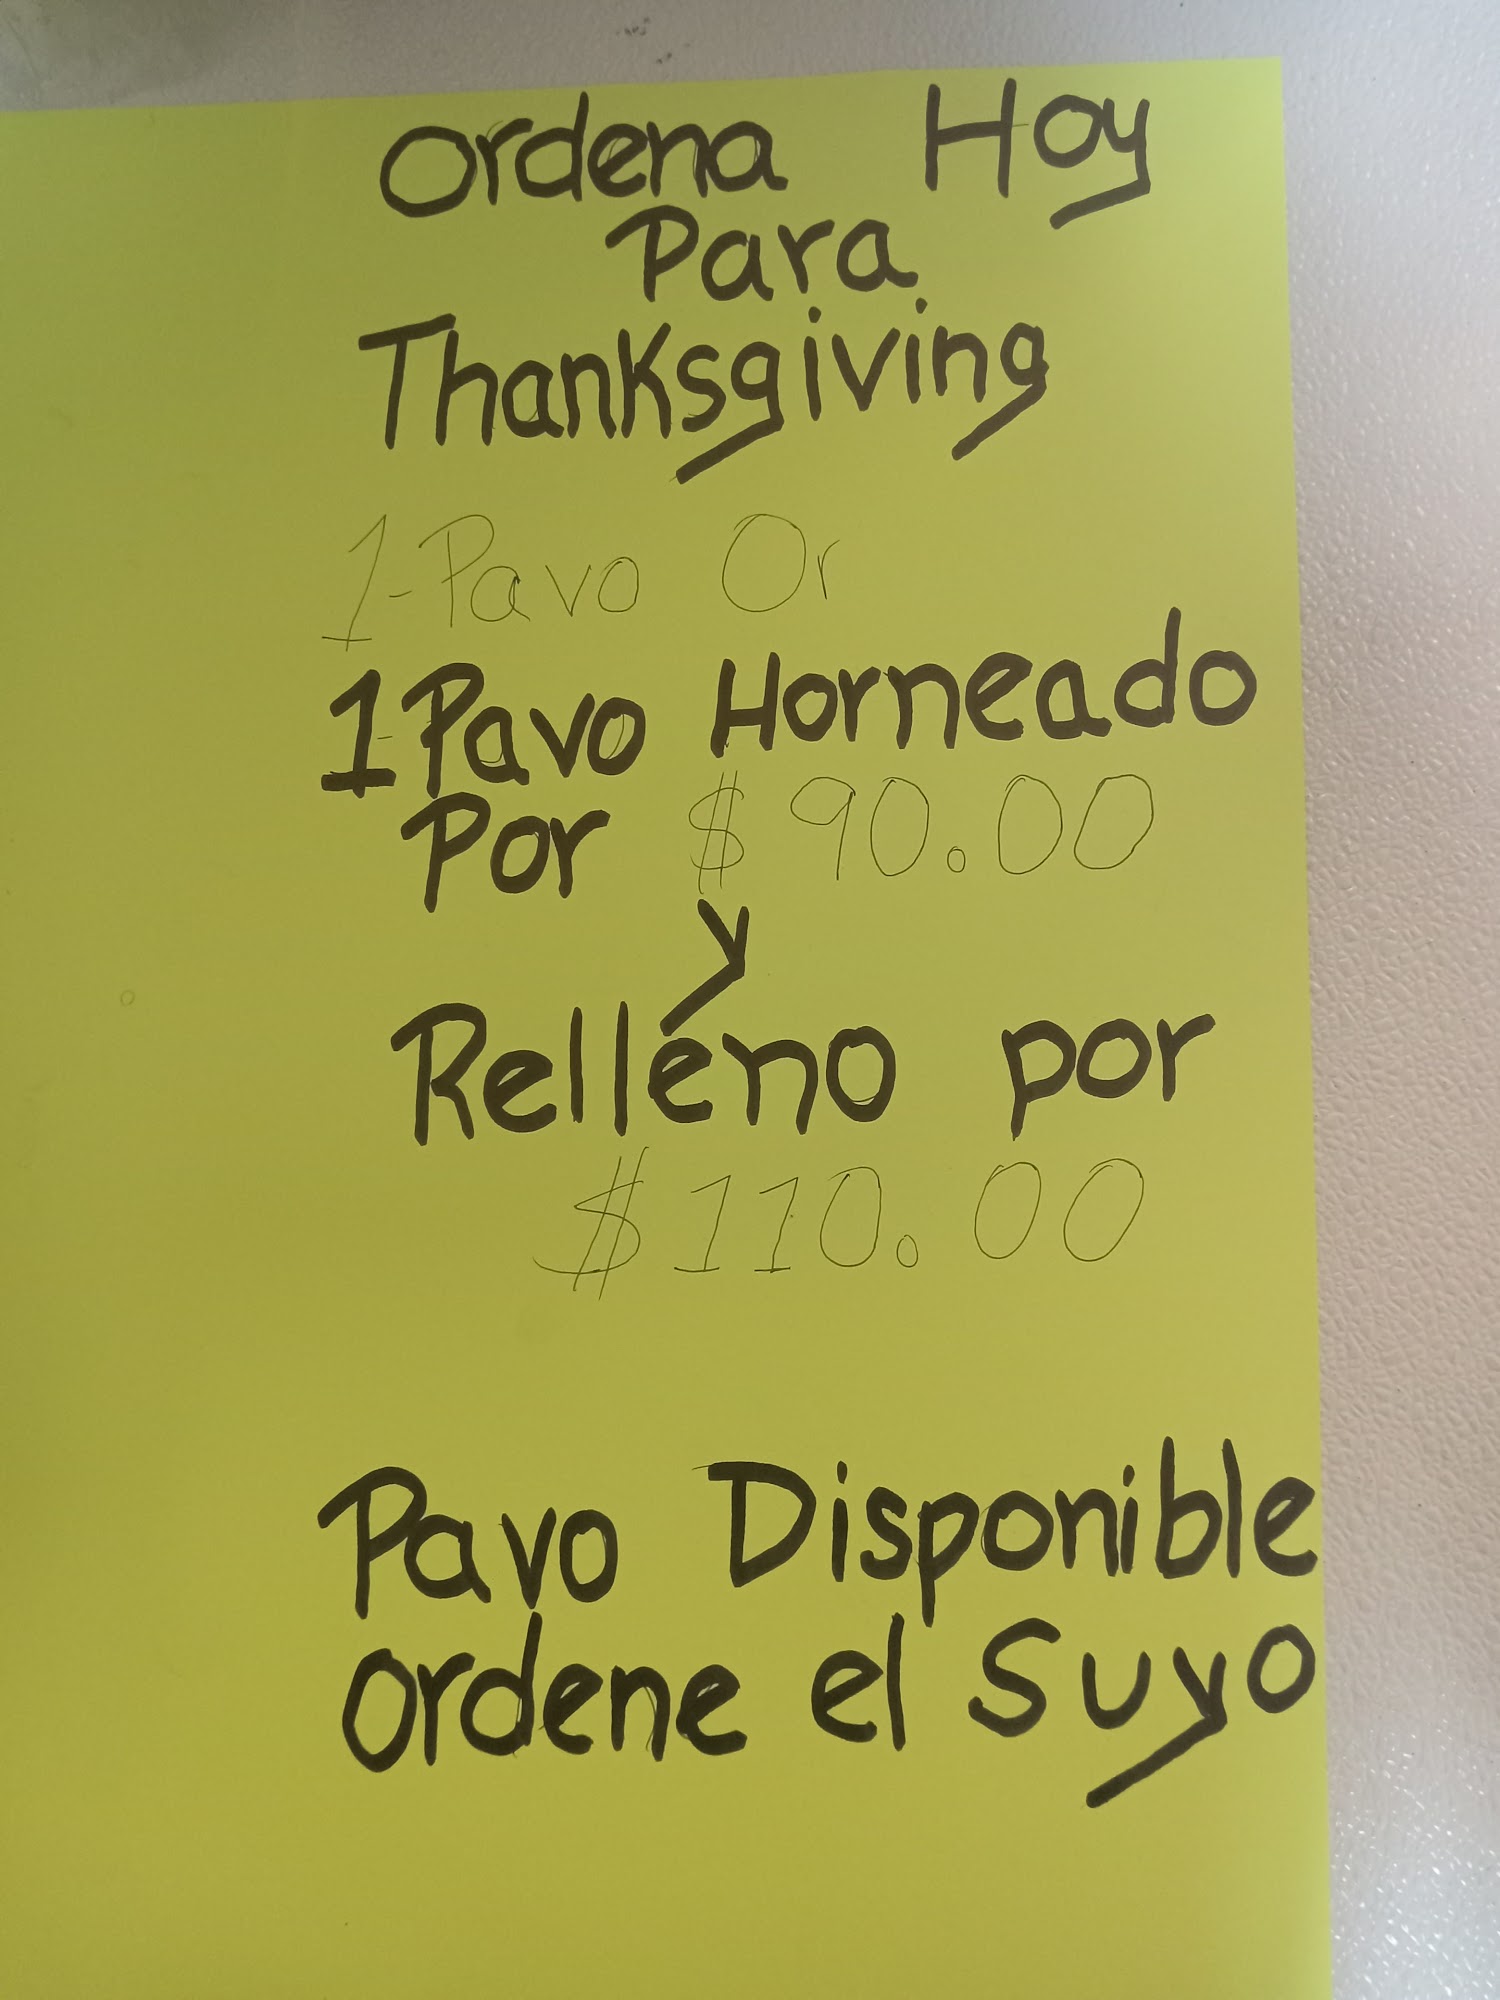 Ordena Hoy
Para
Thanksgiving
1-Pavo Or
1-Pavo Horneado
Por $90.00
y
Relléno por
$110.00
Pavo Disponible
ordene el Suyo